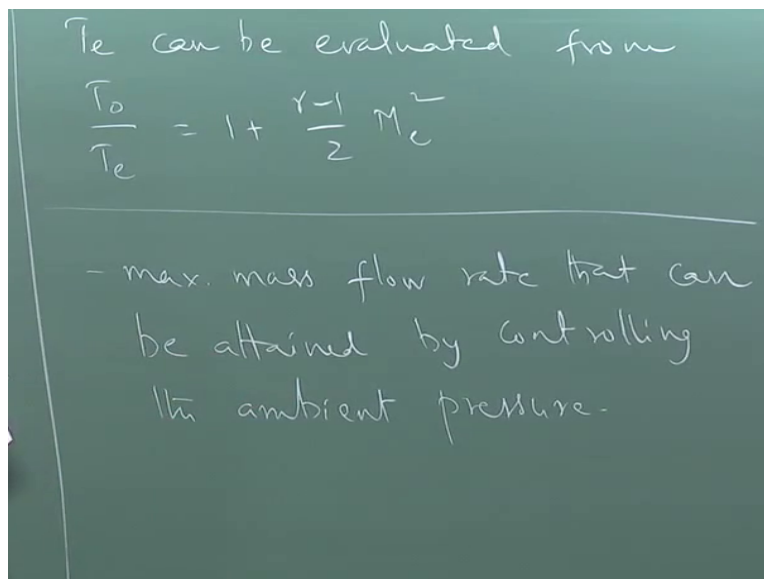 Te can be evaluated from
T₀/Tₑ = 1 + (γ-1)/2 Mₑ²
- max. mass flow rate that can
be attained by controlling
the ambient pressure.